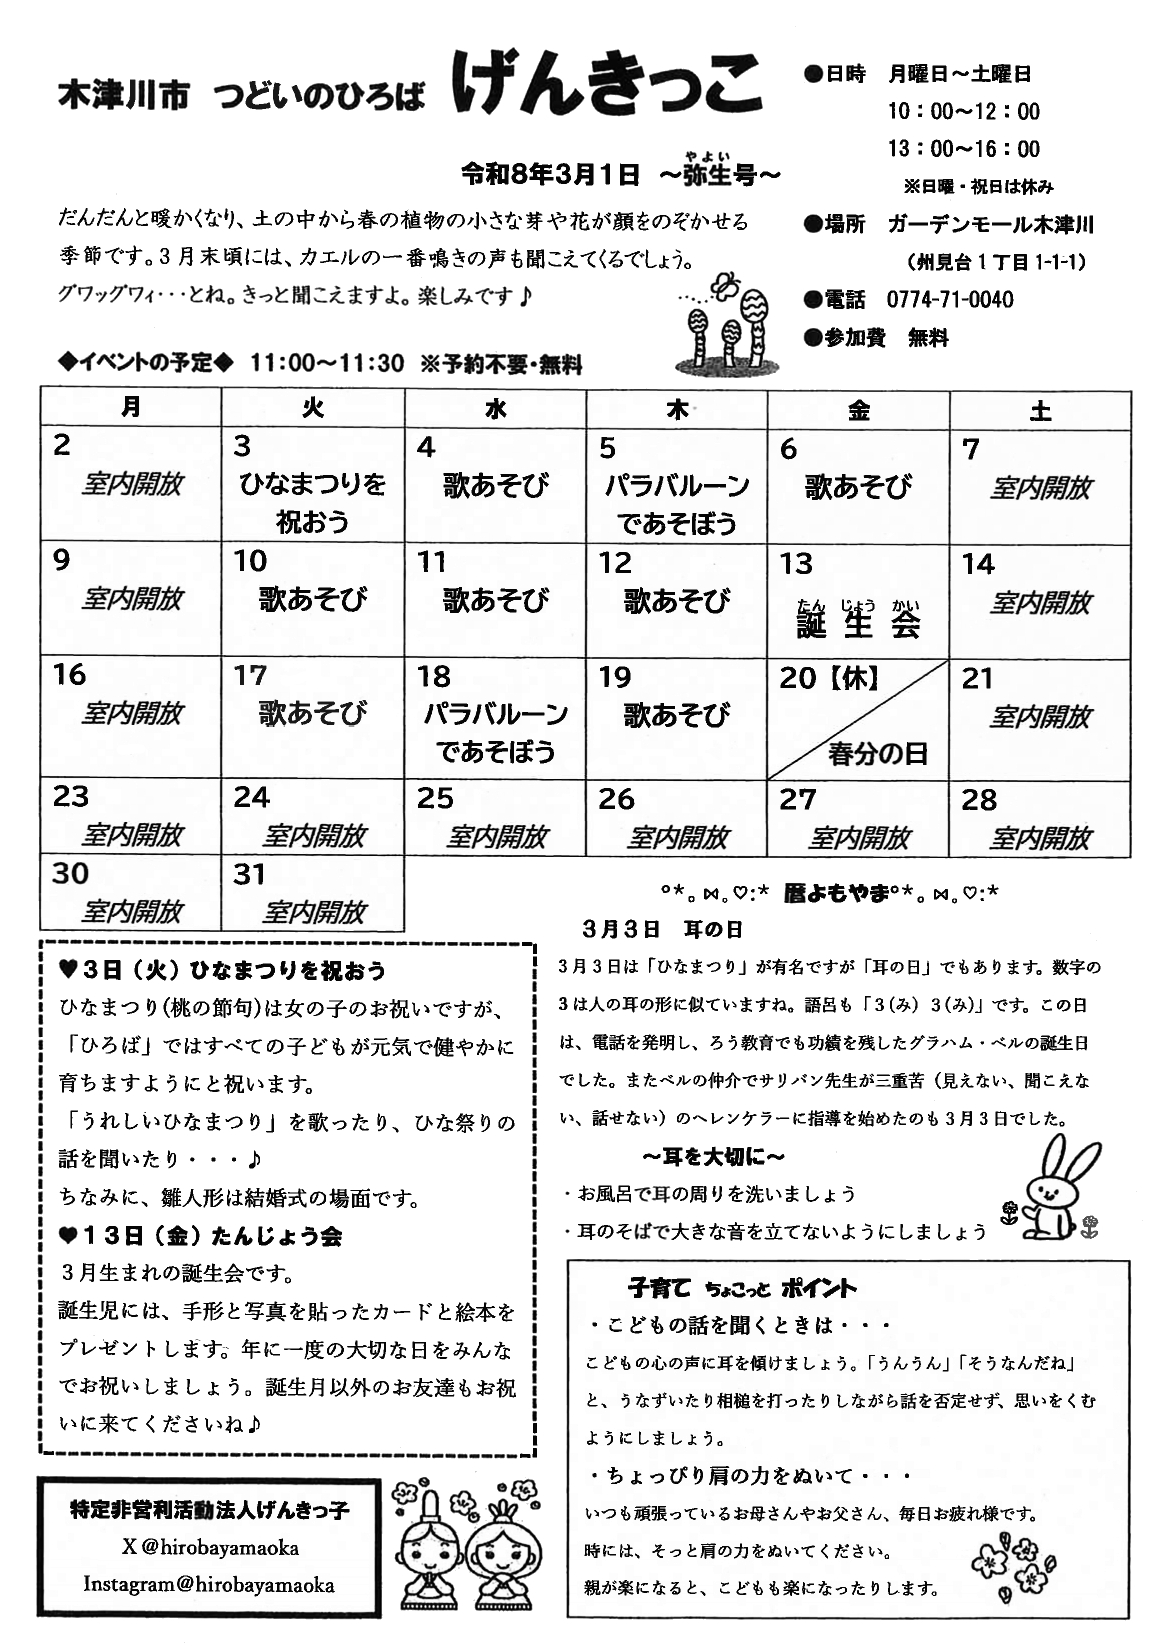 木津川市 つどいのひろば げんきっこ
令和8年3月1日 ～弥生号～
やよい
●日時 月曜日～土曜日
10：00～12：00
13：00～16：00
※日曜・祝日は休み
●場所 ガーデンモール木津川
（州見台１丁目1-1-1）
●電話 0774-71-0040
●参加費 無料
だんだんと暖かくなり、土の中から春の植物の小さな芽や花が顔をのぞかせる
季節です。３月末頃には、カエルの一番鳴きの声も聞こえてくるでしょう。
グワッグワィ･･･とね。きっと聞こえますよ。楽しみです♪
◆イベントの予定◆ 11:00～11:30 ※予約不要・無料
月 火 水 木 金 土
2 室内開放
3 ひなまつりを
祝おう
4 歌あそび
5 パラバルーン
であそぼう
6 歌あそび
7 室内開放
9 室内開放
10 歌あそび
11 歌あそび
12 歌あそび
13 誕生会
たん じょう かい
14 室内開放
16 室内開放
17 歌あそび
18 パラバルーン
であそぼう
19 歌あそび
20【休】
春分の日
21 室内開放
23 室内開放
24 室内開放
25 室内開放
26 室内開放
27 室内開放
28 室内開放
30 室内開放
31 室内開放
♥３日（火）ひなまつりを祝おう
ひなまつり(桃の節句)は女の子のお祝いですが、
「ひろば」ではすべての子どもが元気で健やかに
育ちますようにと祝います。
「うれしいひなまつり」を歌ったり、ひな祭りの
話を聞いたり・・・♪
ちなみに、雛人形は結婚式の場面です。
♥１３日（金）たんじょう会
３月生まれの誕生会です。
誕生児には、手形と写真を貼ったカードと絵本を
プレゼントします。年に一度の大切な日をみんな
でお祝いしましょう。誕生月以外のお友達もお祝
いに来てくださいね♪
特定非営利活動法人げんきっ子
X＠hirobayamaoka
Instagram＠hirobayamaoka
°*｡⋈｡♡:* 暦よもやま°*｡⋈｡♡:*
３月３日 耳の日
３月３日は「ひなまつり」が有名ですが「耳の日」でもあります。数字の
３は人の耳の形に似ていますね。語呂も「３(み) ３(み)」です。この日
は、電話を発明し、ろう教育でも功績を残したグラハム・ベルの誕生日
でした。またベルの仲介でサリバン先生が三重苦（見えない、聞こえな
い、話せない）のヘレンケラーに指導を始めたのも３月３日でした。
～耳を大切に～
・お風呂で耳の周りを洗いましょう
・耳のそばで大きな音を立てないようにしましょう
子育て ちょこっと ポイント
・こどもの話を聞くときは・・・
こどもの心の声に耳を傾けましょう。「うんうん」「そうなんだね」
と、うなずいたり相槌を打ったりしながら話を否定せず、思いをくむ
ようにしましょう。
・ちょっぴり肩の力をぬいて・・・
いつも頑張っているお母さんやお父さん、毎日お疲れ様です。
時には、そっと肩の力をぬいてください。
親が楽になると、こどもも楽になったりします。